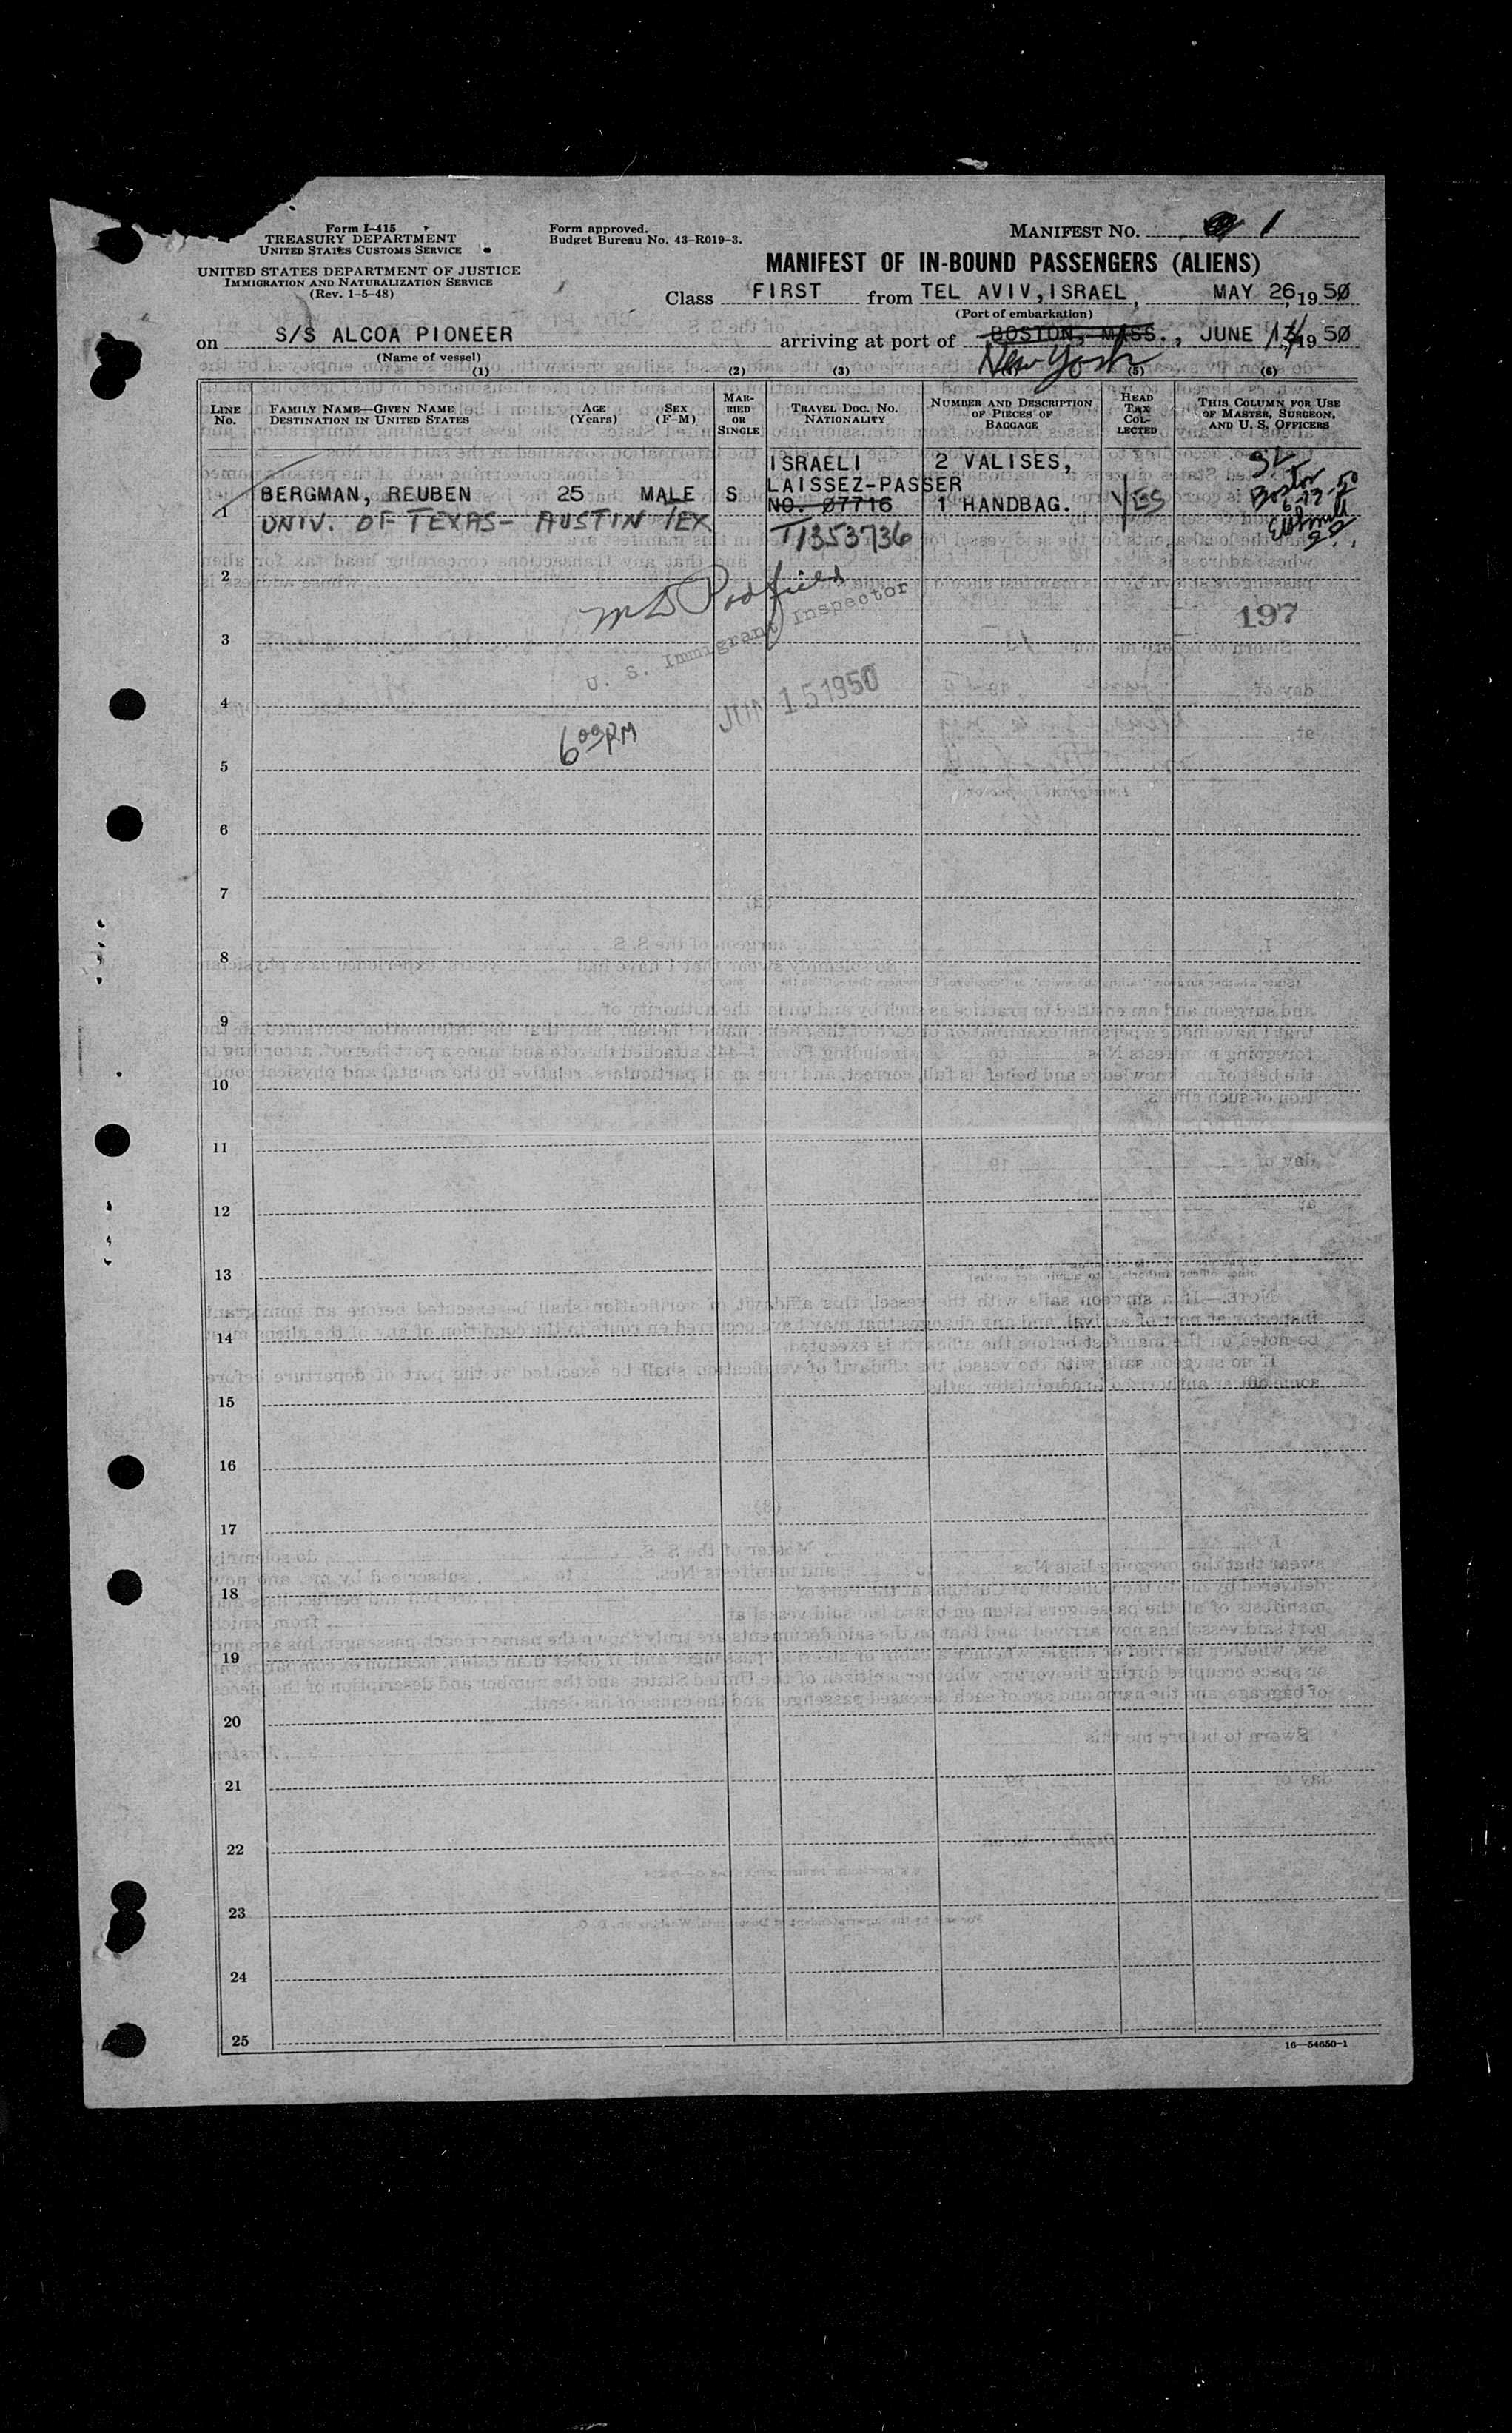 Form I-415
TREASURY DEPARTMENT
UNITED STATES CUSTOMS SERVICE
UNITED STATES DEPARTMENT OF JUSTICE
IMMIGRATION AND NATURALIZATION SERVICE
(Rev. 1-5-48)
Form approved.
Budget Bureau No. 43-R019-3.
MANIFEST NO. 1
MANIFEST OF IN-BOUND PASSENGERS (ALIENS)
Class FIRST from TEL AVIV, ISRAEL, MAY 26, 1950
(Port of embarkation)
on S/S ALCOA PIONEER arriving at port of BOSTON, MASS., JUNE 1950
(Name of vessel) New York
(1) (2) (3) (5) (6)
LINE NO.
FAMILY NAME—GIVEN NAME
DESTINATION IN UNITED STATES
AGE
(YEARS)
SEX
(F-M)
MARRIED OR SINGLE
TRAVEL DOC. NO.
NATIONALITY
NUMBER AND DESCRIPTION
OF PIECES OF
BAGGAGE
HEAD TAX COLLECTED
THIS COLUMN FOR USE
OF MASTER, SURGEON,
AND U. S. OFFICERS
ISRAELI 2 VALISES,
LAISSEZ-PASSER
1 BERGMAN, REUBEN 25 MALE S NO. 07716 1 HANDBAG. YES
Boston
UNIV. OF TEXAS- AUSTIN TEX
T1353736
2
197
3
U. S. Immigrant Inspector
4
JUN 15 1950
6 00 PM
5
6
7
8
9
10
11
12
13
14
15
16
17
18
19
20
21
22
23
24
25
16—54650-1